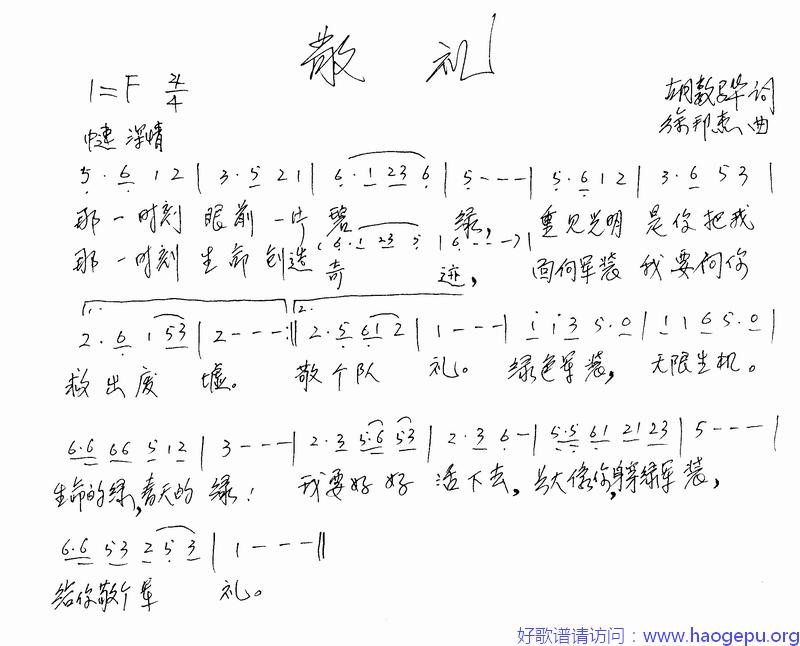 敬 礼
1=F 4/4
词
中速 深情
徐邦杰 曲
5·6 1 2 | 3·5 2 1 | 6·1 23 6 | 5 - - - | 5·6 1 2 | 3·6 5 3 |
那一时刻 眼前一片 碧 绿, 重见光明 是你把我
(6·1 23 5 | 6 - - -)
那一时刻 生命创造 奇 迹, 面向军装 我要向你
1. 2.
2·6 1 53 | 2 - - - :‖ 2·5 61 2 | 1 - - - | i i 3 5·0 | 1 1 6 5·0 |
救出废 墟。 敬个队 礼。 绿色军装, 无限生机。
6·6 66 5 12 | 3 - - - | 2·3 5·6 53 | 2·3 6 - | 5·5 61 21 23 | 5 - - - |
生命的绿,春天的 绿! 我要好好 活下去, 长大像你,身穿绿军装,
6·6 53 2 5 3 | 1 - - - ‖
给你敬个军 礼。
好歌谱请访问:www.haogepu.org